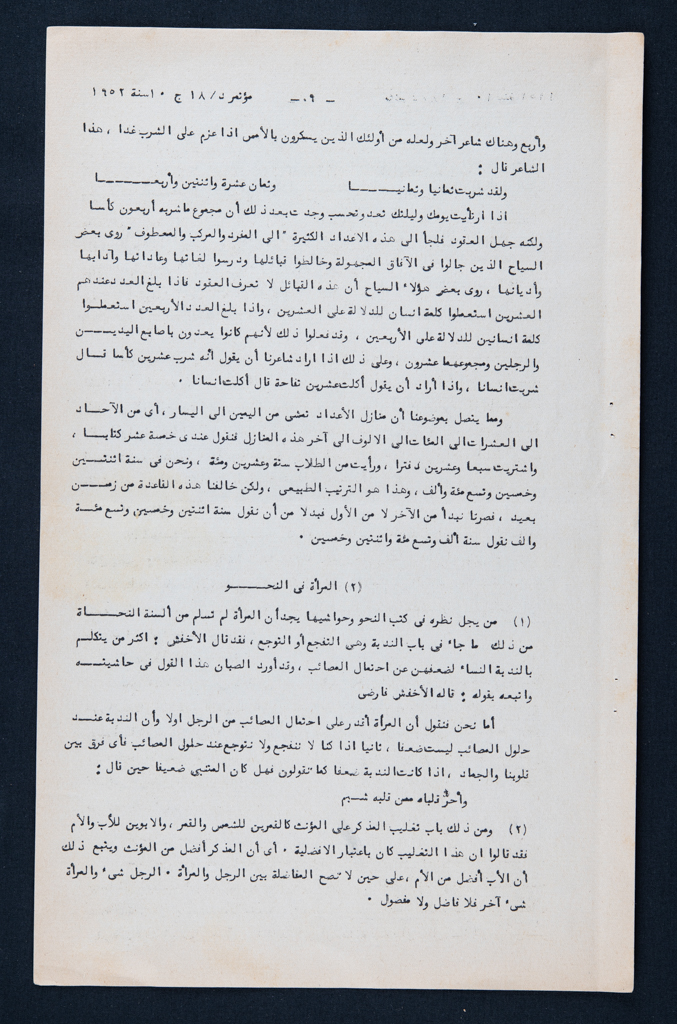 مؤتمر د/١٨ ج ١٠ سنة ١٩٥٢
- ٩ -
وأربع وهناك شاعر آخر ولعله من أولئك الذين يسكرون بالأمس اذا عزم على الشرب غدا ، هذا
الشاعر قال :
ولقد شربت ثمانيا وثمانيـــــا وثمان عشرة واثنتين وأربعـــــا
اذا ارتأيت يومك وليلتك تعد وتحسب وجدت بعد ذلك أن مجموع ماشربه أربعون كأسا
ولكنه جهل العقود فلجأ الى هذه الاعداد الكثيرة " الى المفرد والمركب والمعطوف " روى بعض
السياح الذين جالوا فى الآفاق المجهولة وخالطوا قبائلها ودرسوا لغاتها وعاداتها وآدابها
وأديانها ، روى بعض هؤلاء السياح أن هذه القبائل لا تعرف العقود فاذا بلغ العدد عندهم
العشرين استعملوا كلمة انسان للدلالة على العشرين ، واذا بلغ العدد الأربعين استعملـوا
كلمة انسانين للدلالة على الأربعين ، وقد فعلوا ذلك لأنهم كانوا يعدون باصابع اليديـــن
والرجلين ومجموعهما عشرون ، وعلى ذلك اذا اراد شاعرنا أن يقول أنه شرب عشرين كأسا قـال
شربت انسانا ، واذا أراد أن يقول أكلت عشرين تفاحة قال أكلت انسانا .
ومما يتصل بموضوعنا أن منازل الأعداد تمشى من اليمين الى اليسار ، أى من الآحـاد
الى العشرات الى المئات الى الالوف الى آخر هذه المنازل فنقول عندى خمسة عشر كتابـا ،
واشتريت سبعا وعشرين دفترا ، ورأيت من الطلاب ستة وعشرين ومئة ، ونحن فى سنة اثنتـين
وخمسين وتسع مئة وألف ، وهذا هو الترتيب الطبيعى ، ولكن خالفنا هذه القاعدة من زمــن
بعيد ، فصرنا نبدأ من الآخر لا من الأول فبدلا من أن نقول سنة اثنتين وخمسين وتسع مئـة
والف نقول سنة ألف وتسع مئة واثنتين وخمسين .
(٢) المرأة فى النحـــو
(١) من يجل نظره فى كتب النحو وحواشيها يجد أن المرأة لم تسلم من ألسنة النحــاة
من ذلك ما جاء فى باب الندبة وهى التفجع أو التوجع ، فقد قال الأخفش : اكثر من يتكلـم
بالندبة النساء لضعفهن عن احتمال المصائب ، وقد أورد الصبان هذا القول فى حاشيتــه
واتبعه بقوله : قاله الأخفش فارضى
أما نحن فنقول أن المرأة أقدر على احتمال المصائب من الرجل اولا وأن الندبة عنــد
حلول المصائب ليست ضعفا ، ثانيا اذا كنا لا نتفجع ولا نتوجع عند حلول المصائب فأى فرق بين
قلوبنا والجماد ، اذا كانت الندبة ضعفا كما تقولون فهل كان المتنبى ضعيفا حين قال :
وأحرّ قلباه ممن قلبه شــبم
(٢) ومن ذلك باب تغليب المذكر على المؤنث كالقمرين للشمس والقمر ، والابوين للأب والأم
فقد قالوا ان هذا التغليب كان باعتبار الافضلية . أى أن المذكر أفضل من المؤنث ويتبع ذلك
أن الأب أفضل من الأم ، على حين لا تصح المفاضلة بين الرجل والمرأة . الرجل شىء والمرأة
شىء آخر فلا فاضل ولا مفضول .